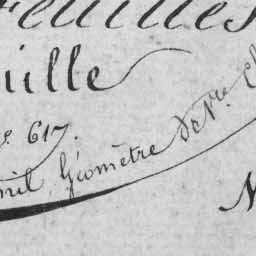 Feuilles
uille
º. 617.
nil, Géomètre de 1re. Cl
N